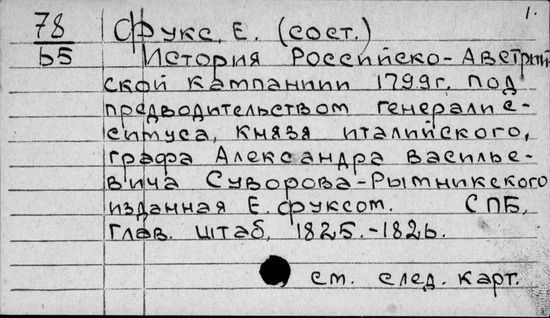 1.
78 Фукс, Е. (сост.)
Б5 История Российско-Австрий
ской кампании 1799г. под
предводительством генералис-
симуса, князя италийского,
графа Александра Василье-
вича Суворова-Рымникского
изданная Е. Фуксом. СПБ,
Глав. штаб, 1825.-1826.
см. след. карт.